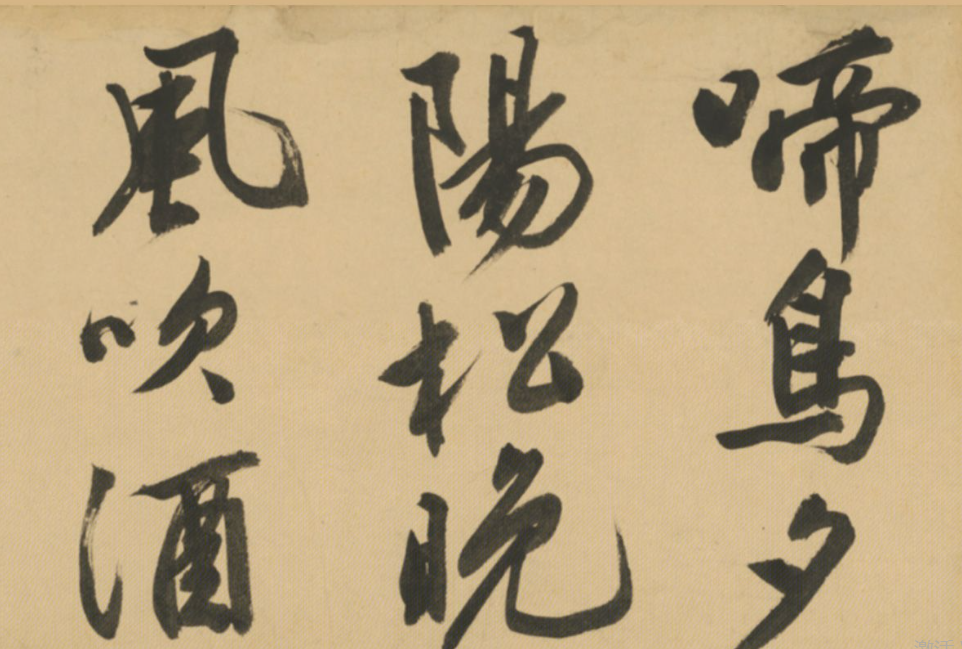 啼鳥夕
陽松晚
風吹酒